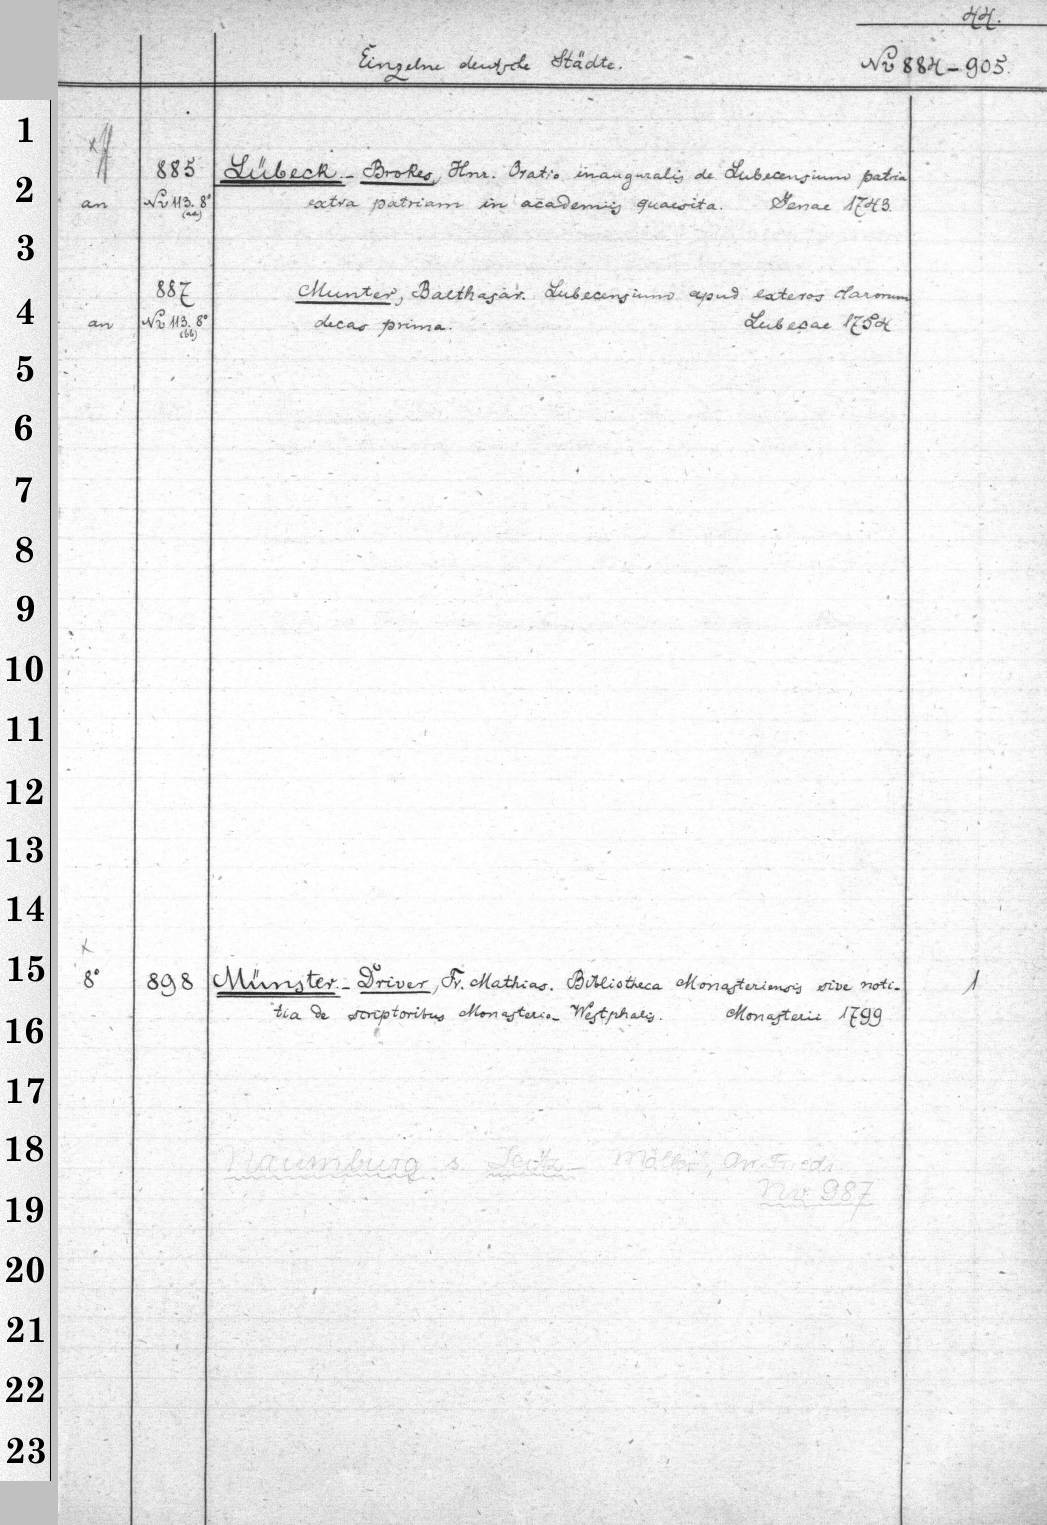 44.
Einzelne deutsche Städte. No 884-905.
1
885 Lübeck.- Brokes, Hnr. Oratio inauguralis de Lubecensium patria
2
an No 113. 8° extra patriam in academiis quaesita. Jenae 1743.
(aa)
3
887 Munter, Balthasar. Lubecensium apud exteros clarorum
4
an No 113. 8° decas prima. Lubecae 1754
(bb)
5
6
7
8
9
10
11
12
13
14
x
15
8° 898 Münster.- Driver, Fr. Mathias. Bibliotheca Monasteriensis sive noti-
1
16
tia de scriptoribus Monasterio-Westphalis. Monasterii 1799
17
18
Naumburg s.
19
No 987
20
21
22
23